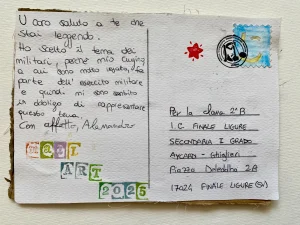 U caro saluto a te che
stai leggendo.
Ho scelto il tema dei
militari, perché mio cugino
a cui sono molto legato, fa
parte dell' esercito militare
e quindi mi sono sentito
in obbligo di rappresentare
questo tema.
Con affetto, Alessandro
MAIL
ART
2025
Per la classe 2°B
I.C. FINALE LIGURE
SECONDARIA I GRADO
AYCARD - Ghiglieri
Piazza 2B
17024 FINALE LIGURE (SV)